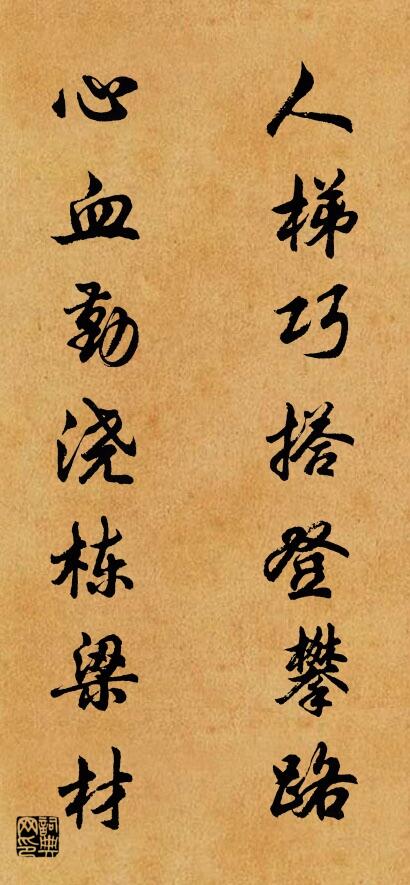 人梯巧搭登攀路
心血勤浇栋梁材
詞典网印